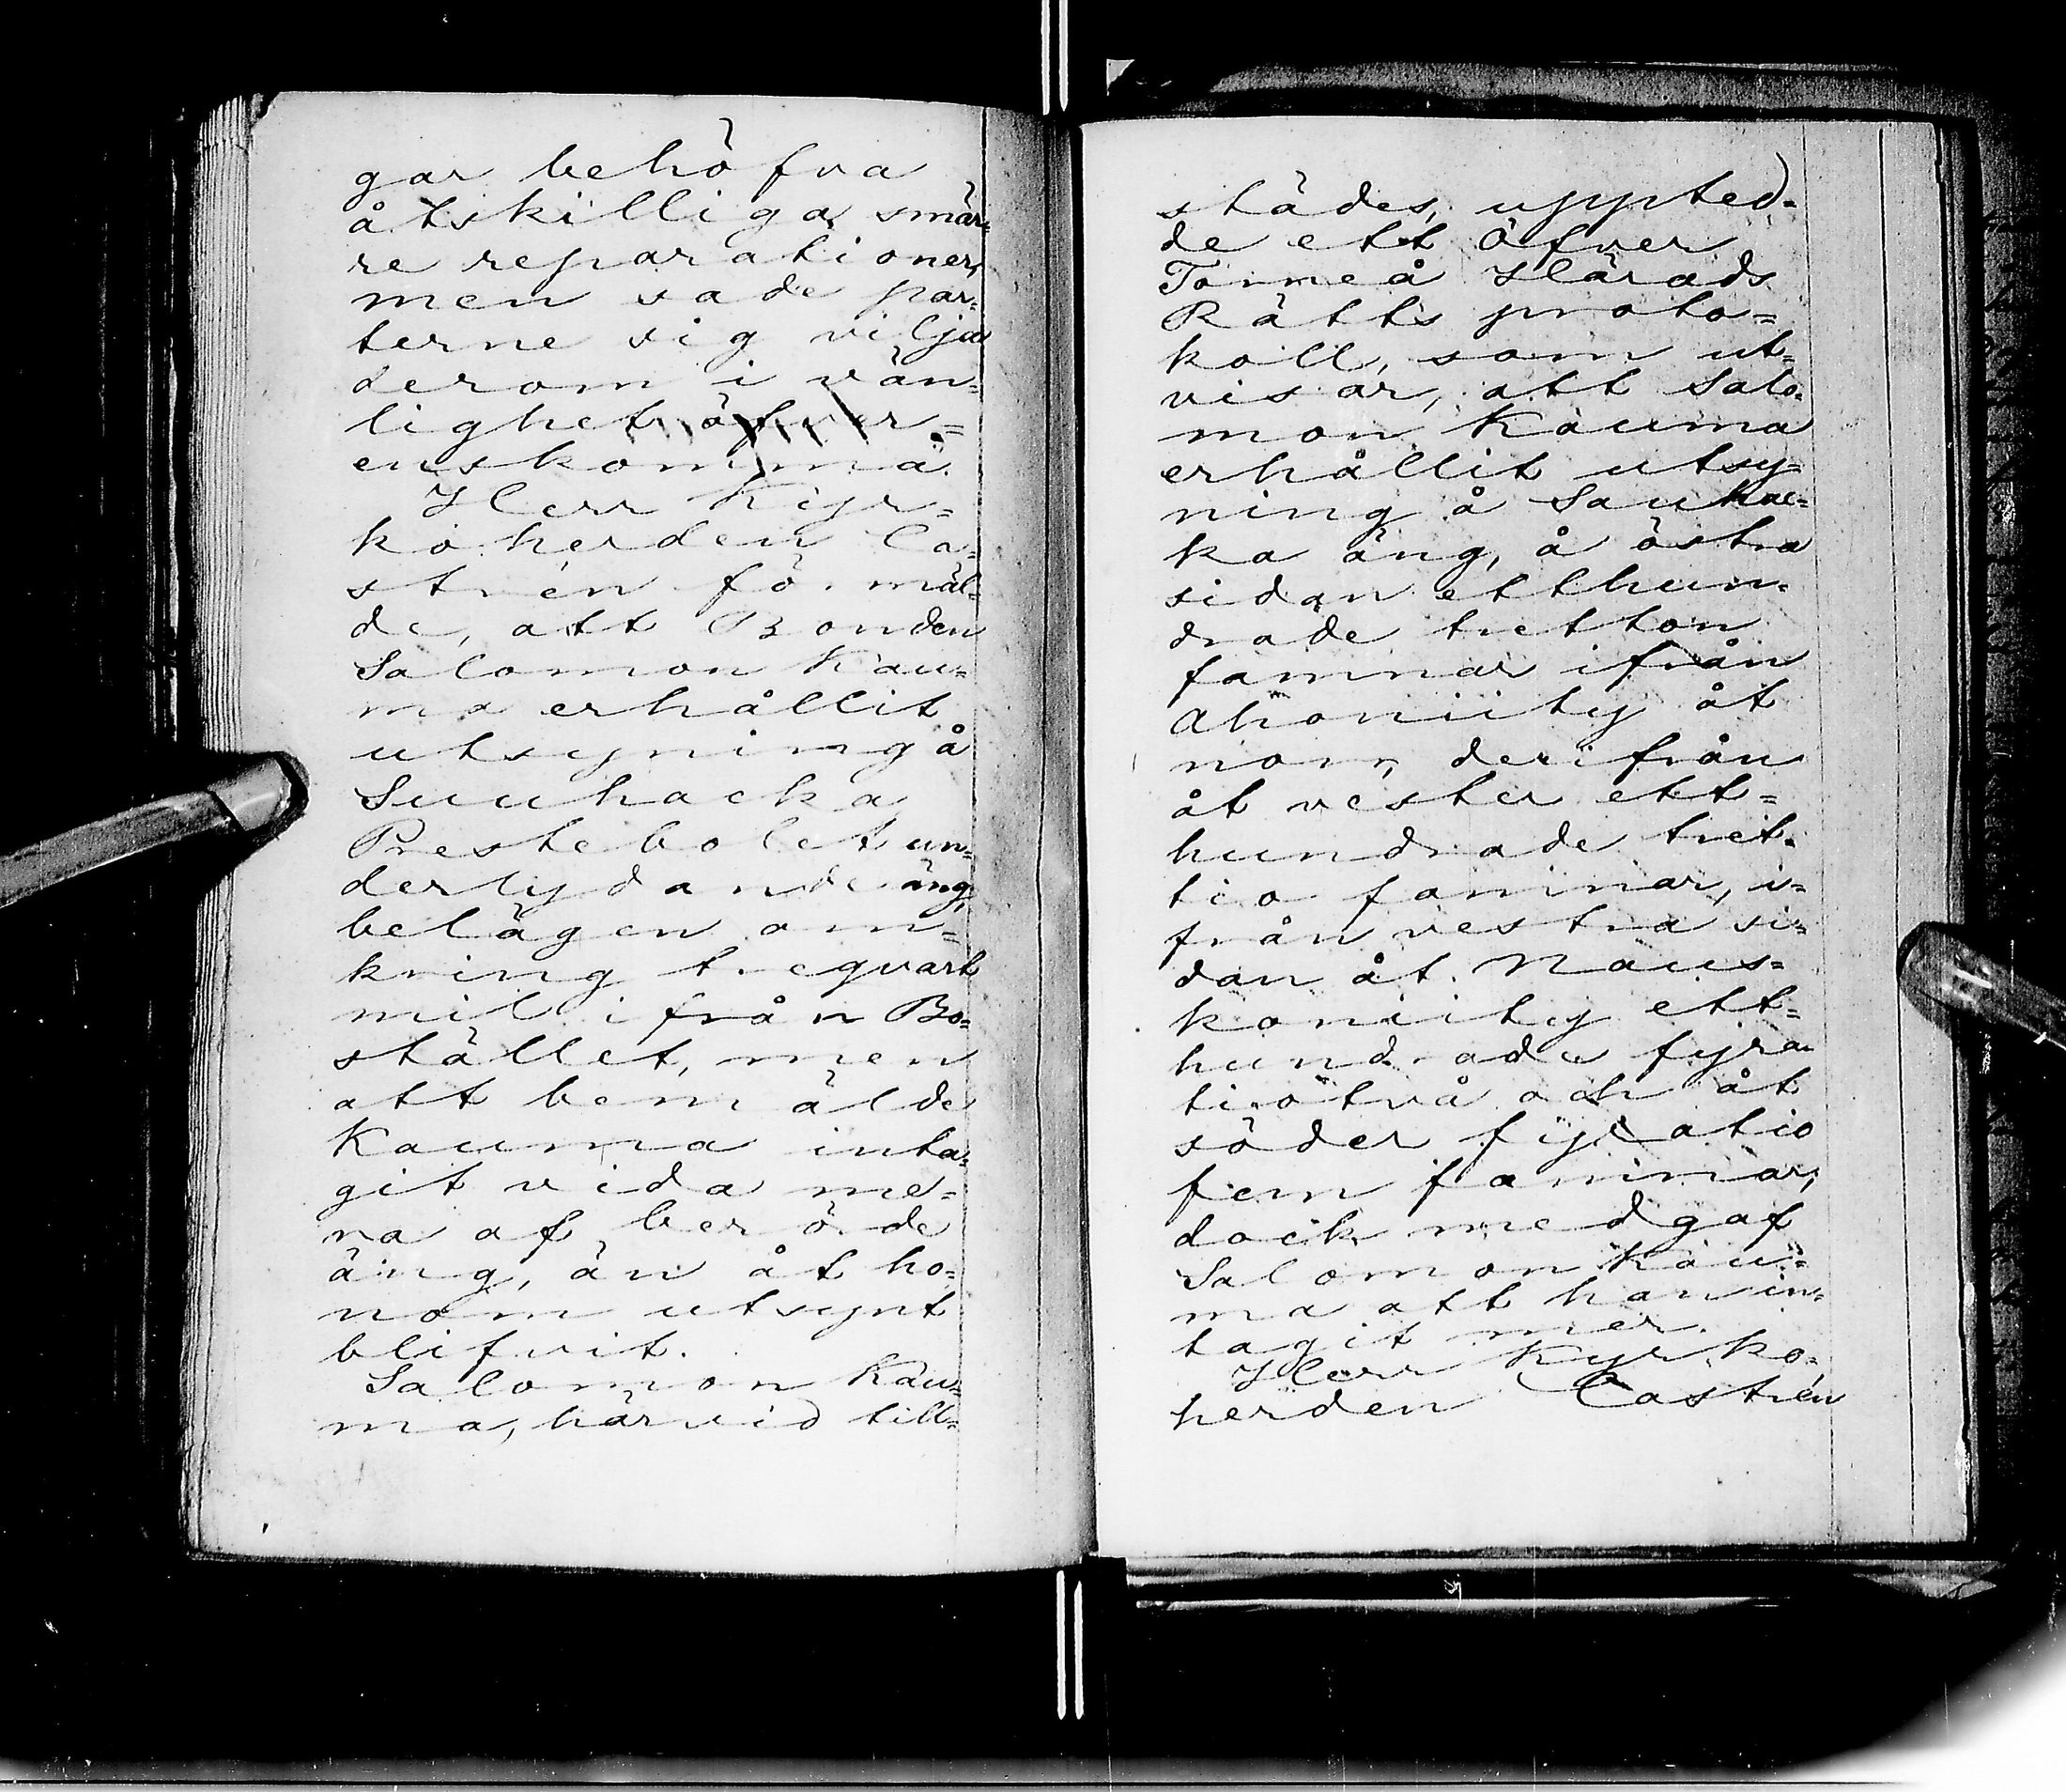 gar behöfva
åtskilliga smär=
re reparationer,
men sade par=
terne sig vilja
derom i vän=
lighet öfver=
enskomma.
Herr Kyr=
koherden Ca=
strén förmäl=
de, att Bonden
Salomon Kau=
ma erhållit
utsyning å
Suuhacka
Prestebolet un=
derlydande äng,
belägen om=
kring trequart
mil ifrån Bo=
stället, men
att bemälde
Kauma inta=
git vida me=
ra af berörde
äng, än åt ho=
nom utsynt
blifvit.
Salomon Kau=
ma, härvid till=
städes, uppted=
de ett Öfver
Torneå Härads
Rätts proto=
koll, som ut=
visar, att Salo=
mon Kauma
erhållit utsy=
ning å Sauhac=
ka äng, å östra
sidan etthun=
drade tretton
famnar ifrån
Ahoniity åt
norr, derifrån
åt vester ett=
hundrade tret=
tio famnar, i=
från vestra si=
dan åt Naus=
koniity ett=
hundrade fyra=
tiotvå och åt
söder fyratio
fem famnar,
dock medgaf
Salomon Kau=
ma att han in=
tagit mer.
Herr Kyrko=
herden Castrén